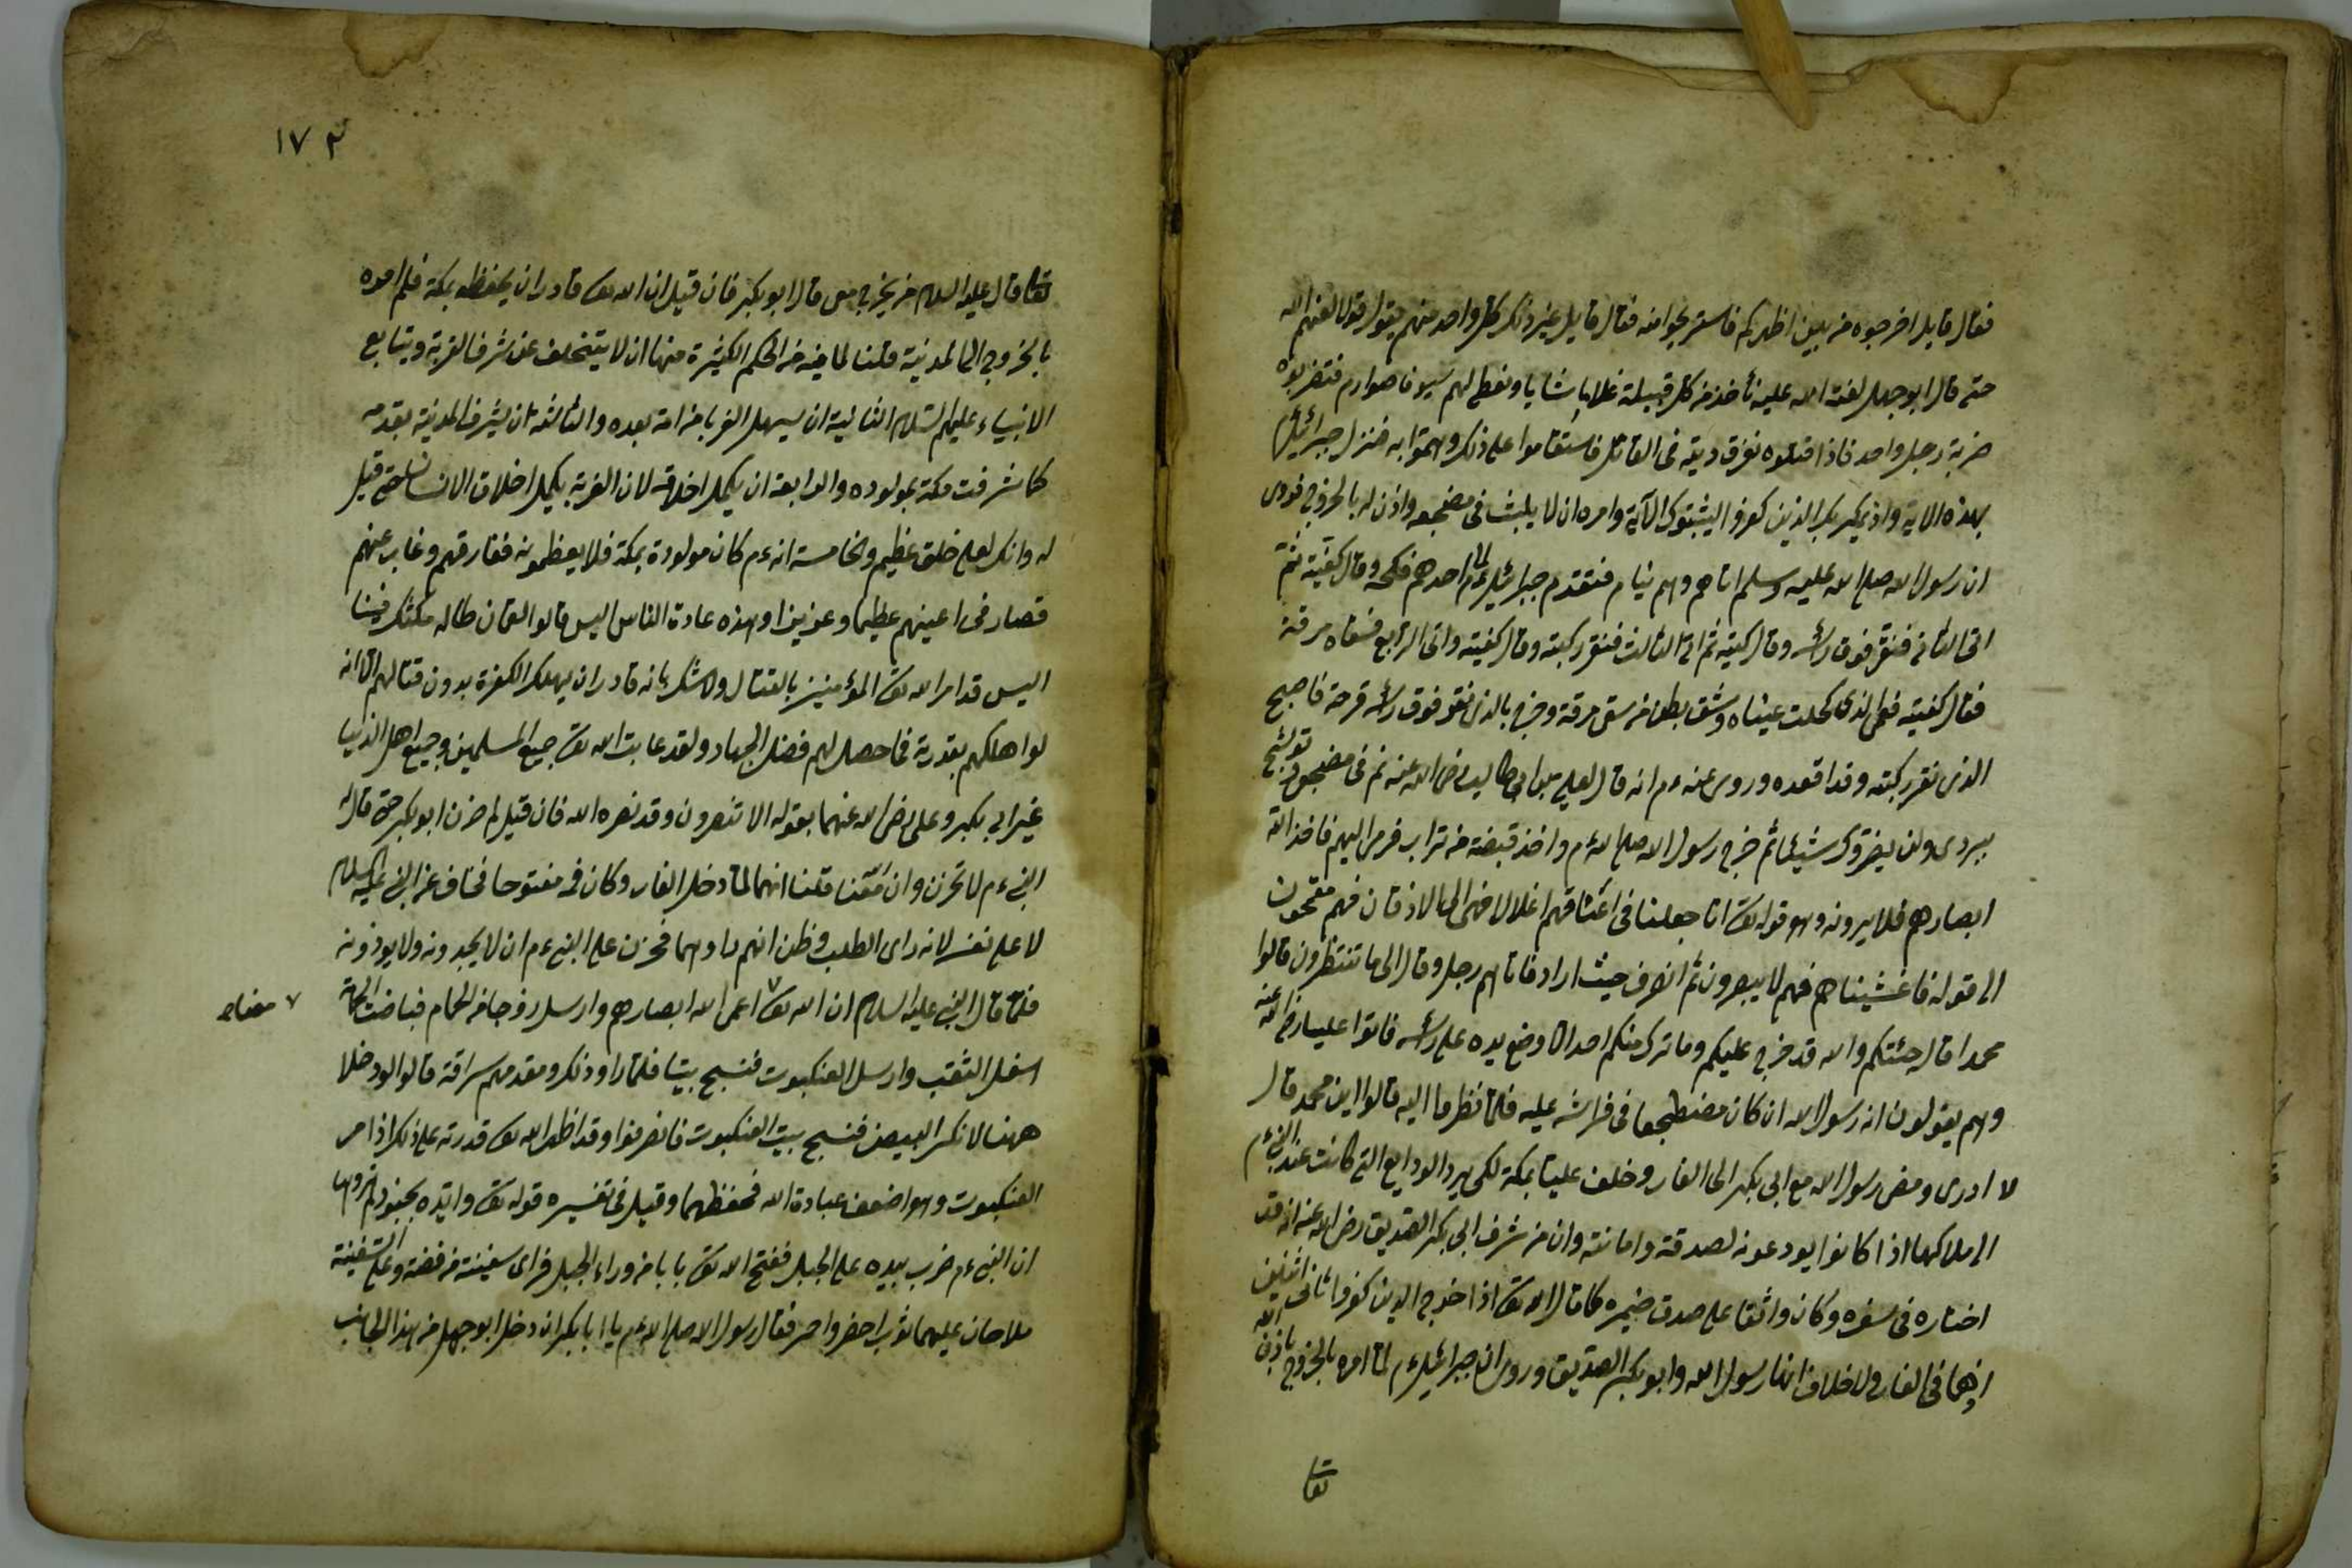 فقال قايل اخرجوه من بين اظهركم فاستريحوا منه فقال قايل غير ذلك كل واحد منهم يقول قولا لعنهم الله
حتى قال ابو جهل لعنة الله عليه نأخذ من كل قبيلة غلاما شابا ونعطى لهم سيوفا صوارم فتضربوه
ضربة رجل واحد فاذا قتلوه تفرق ديته فى القبائل فاستقاموا على ذلك وهموا به فنزل جبرائيل
بهذه الاية واذ يمكر بك الذين كفروا ليثبتوك الآية وامره ان لا يلبث فى مضجعه واذن له بالخروج فروى
ان رسول الله صلى الله عليه وسلم اتاهم وهم نيام فتقدم جبرائيل ءم الى احدهم فكحله وقال كفيته ثم
اتى الثانى فنقر فوق رأسه وقال كفيته ثم اتى الثالث فنقر ركبته وقال كفيته واتى الرابع فسقاه مرقة
فقال كفيته فعمى الذى كحلت عيناه وشق بطن من سقى مرقة وخرج بالذى نقر فوق رأسه قرحة فاصبح
الذى نقر ركبته وقد اقعده وروى عنه ءم انه قال لعلى بن ابى طالب رضى الله عنه نم فى مضجعى وتوشح
ببردى ولن يضروك شيئا ثم خرج رسول الله صلى الله ءم واخذ قبضة من تراب فرمى اليهم فاخذ الله
ابصارهم فلا يرونه وهو قوله تعا انا جعلنا فى اعناقهم اغلالا فهى الى الاذقان فهم مقمحون
الى قوله فاغشيناهم فهم لا يبصرون ثم انصرف حيث اراد فاتاهم رجل وقال الى ما تنتظرون قالوا
محمدا قال جئتكم والله قد خرج عليكم وما ترك منكم احدا الا وضع يده على رأسه فاتوا عليا رضى الله عنه
وهم يقولون انه رسول الله ان كان مضطجعا فى فراشه عليه فلما نظروا اليه قالوا اين محمد قال
لا ادرى ومضى رسول الله مع ابى بكر الى الغار وخلف عليا بمكة لكى يرد الودايع التى كانت عند النبى ءم
الى ملاكها اذا كانوا يودعونه لصدقه وامانته وان من شرف ابى بكر الصديق رضى الله عنه انه قد
اختاره فى سفره وكان واثقا على صدق ضميره كما قال الله تعا اذ اخرجه الذين كفروا ثانى اثنين
اذهما فى الغار ولا خلاف انهما رسول الله وابو بكر الصديق وروى ان جبرائيل ءم لما امره بالخروج باذن الله
تعا
١٧٣
تعا قال عليه السلام من يخرج معى قال ابو بكر فان قيل ان الله تعا قادر ان يحفظه بمكة فلم امره
بالخروج الى المدينة قلنا لما فيه من الحكم الكثيرة منها ان لا يتخلف عن شرف الغربة ويتابع
الانبياء عليهم السلام الثانية ان يسهل الغربا من امة بعده والثالثة ان يشرف المدينة بقدمه
كما شرفت مكة بمولوده والرابعة ان يكمل اخلاقه لان الغربة يكمل اخلاق الانسان حتى قيل
له وانك لعلى خلق عظيم والخامسة انه ءم كان مولودة بمكة فلا يعظمونه ففارقهم وغاب عنهم
فصار فى اعينهم عظيما وعزيزا وهذه عادة الناس اليس قالوا لقمان طاله مكثك فينا
اليس قد امر الله تعا المؤمنين بالقتال ولا شك بانه قادر ان يهلك الكفرة بدون قتالهم الا انه
لو اهلكهم بقدرته فما حصل لهم فضل الجهاد ولقد عاتب الله تعا جميع المسلمين وجميع اهل الدنيا
غير ابى بكر وعلى رضى الله عنهما بقوله الا تنصرون وقد نصره الله فان قيل لم حزن ابو بكر حتى قال له
النبى ءم لا تحزن وان الله معنا قلنا انهما لما دخل الغار وكان فمه مفتوحا فخاف عن النبى عليه السلام
لا على نفسه لانه راى الطلب وظن انهم راوهما فحزن على النبى ءم ان لا يجدونه ولا يوذونه
فلما قال النبى عليه السلام ان الله تعا ٧ اعمى الله ابصارهم وارسل زوجا من الحمام فباضت الحمامة
٧ معناه
اسفل الثقب وارسل العنكبوت فنسج بيتا فلما راو ذلك ومقدمهم سراقة قالوا لو دخلا
ههنا لانكسر البيض فنسج بيت العنكبوت فانصرفوا وقد اظهر الله تعا قدرته على ذلك اذ امر
العنكبوت وهو اضعف عبادة الله فحفظهما وقيل فى تفسيره قوله تعا وايده بجنود لم تروها
ان النبى ءم ضرب بيده على الجبل ففتح الله تعا بابا من وراء الجبل فراى سفينة من فضة وعلى السفينة
ملاحان عليهما ثوب اخضر واحمر فقال رسول الله صلى الله ءم يا ابا بكر ان دخل ابو جهل من هذا الجانب